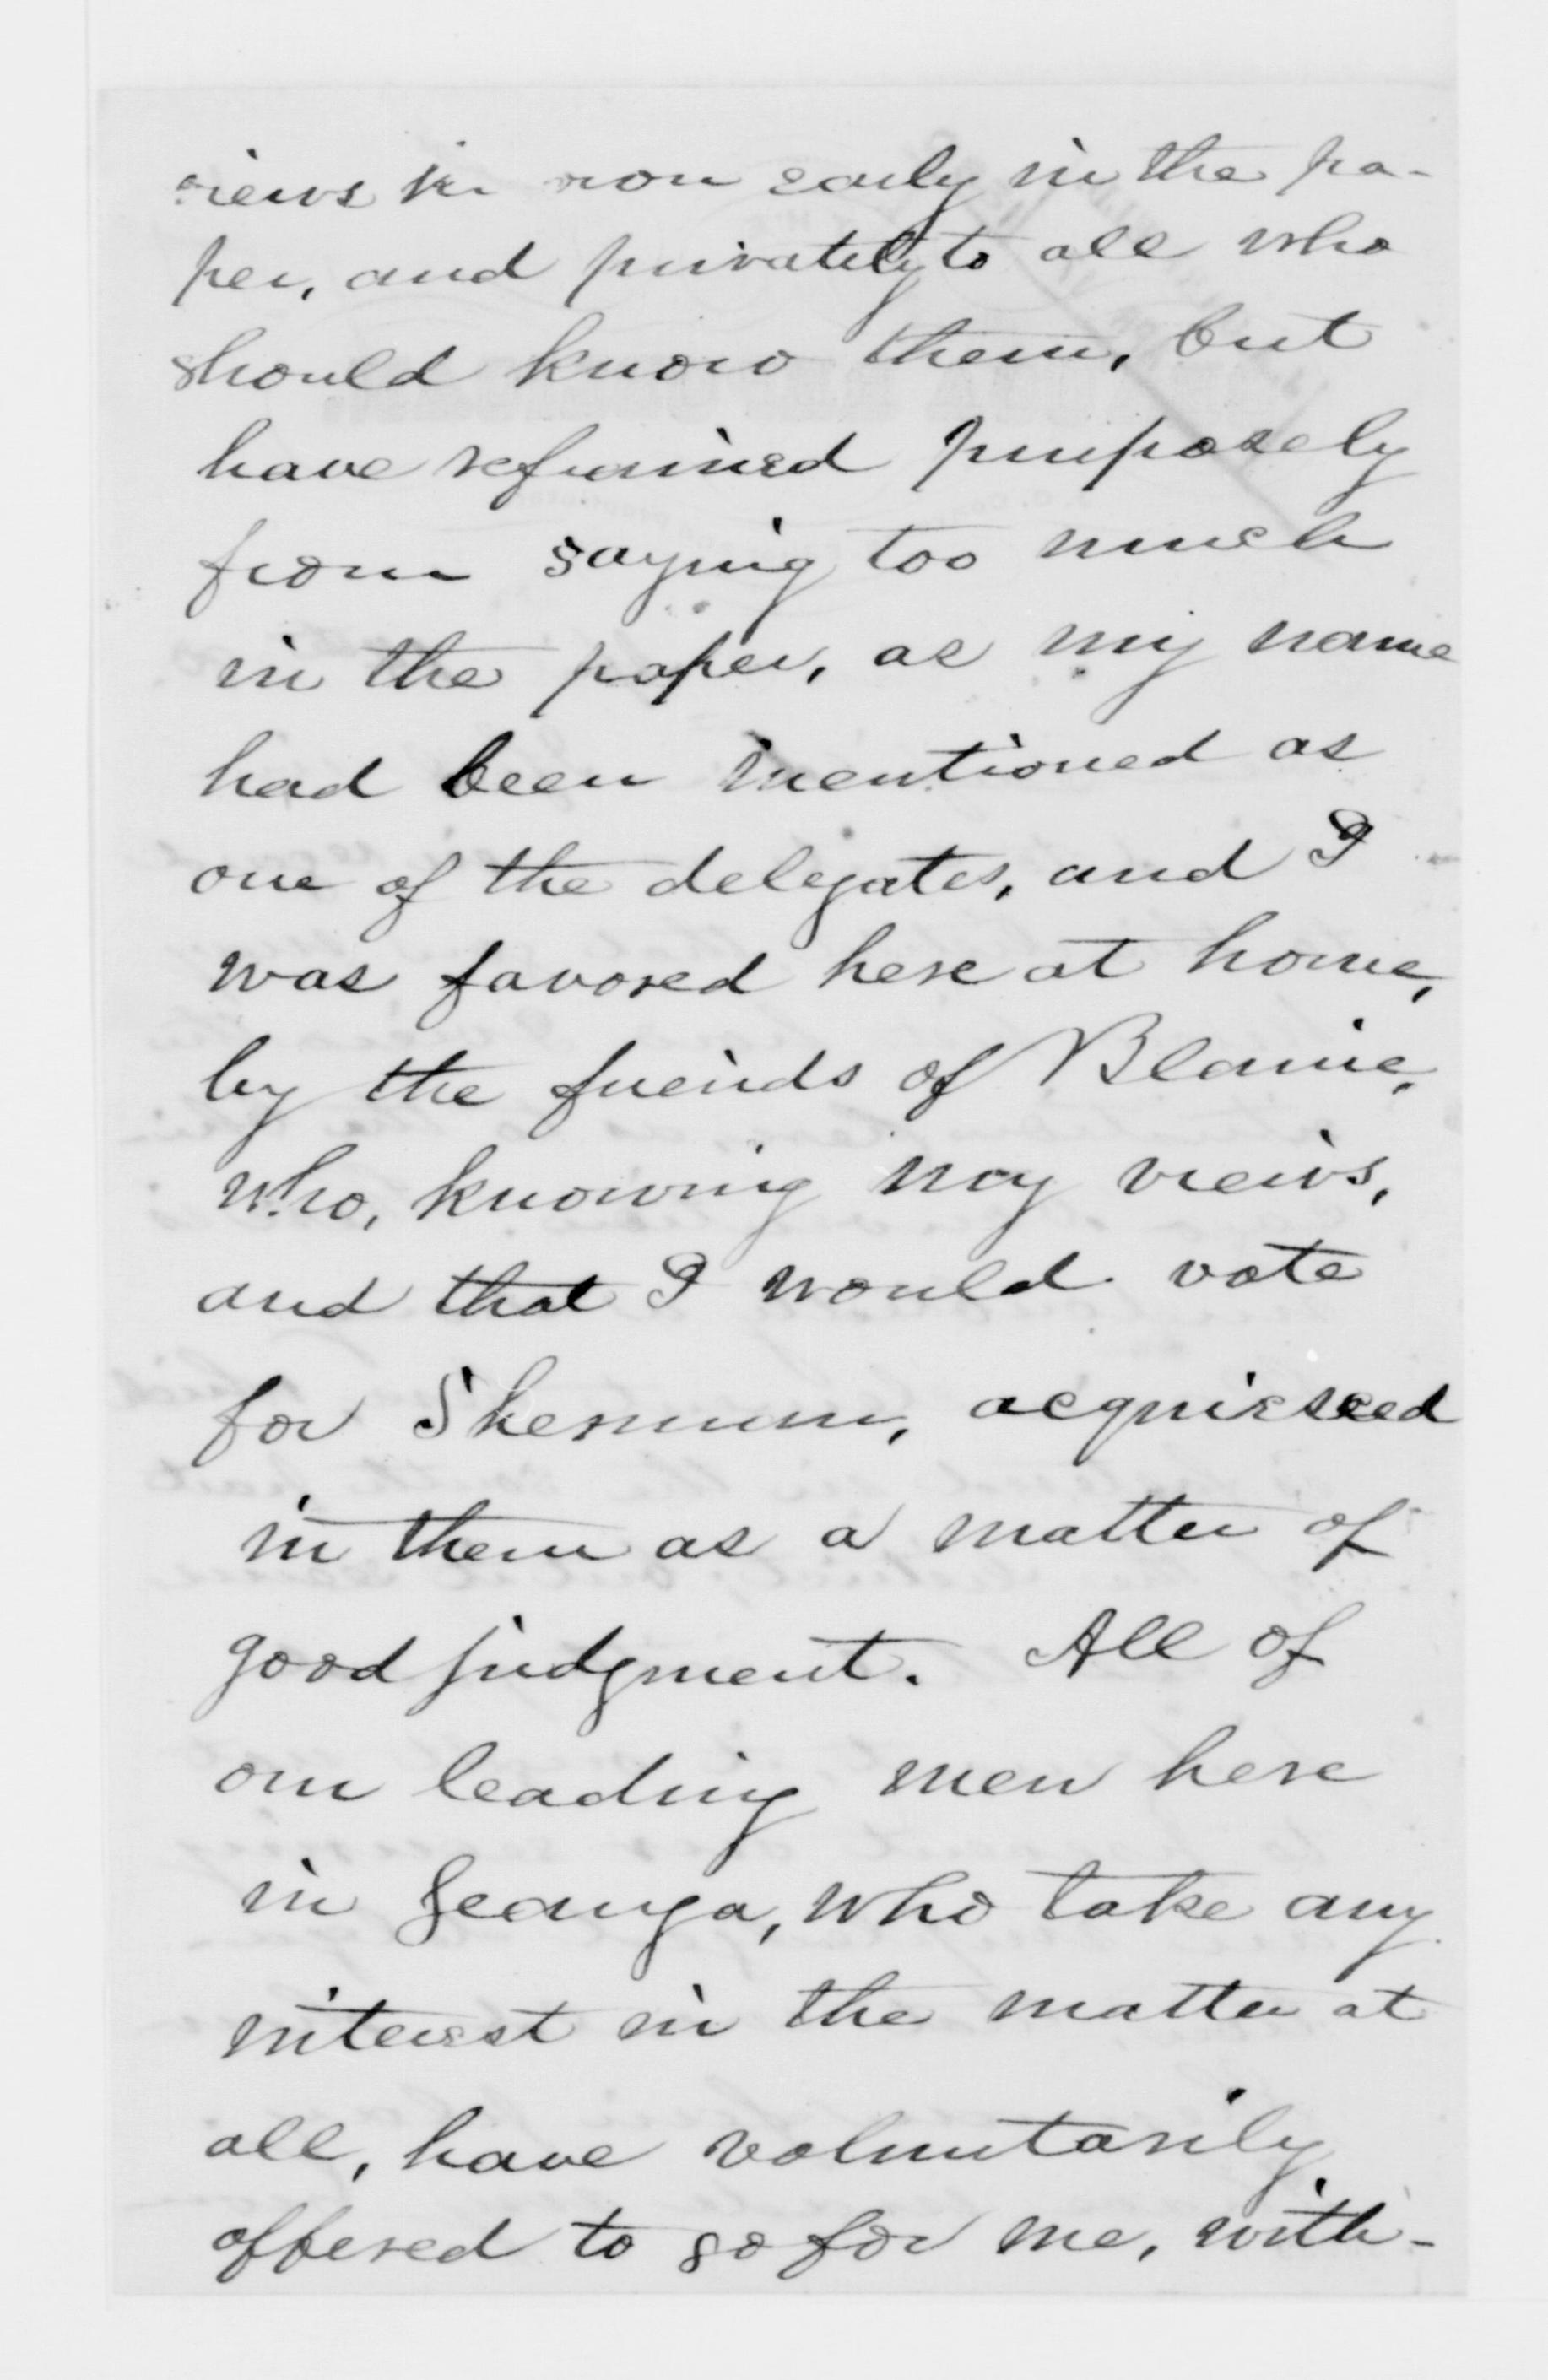 views early in the pa-
per, and privately to all who
should know them, but
have refrained purposely
from saying too much
in the paper, as my name
had been mentioned as
one of the delegates, and I
was favored here at home,
by the friends of Blaine,
who, knowing my views,
and that I would vote
for Sherman, acquiesced
in them as a matter of
good judgment. All of
our leading men here
in Geauga, who take any
interest in the matter at
all, have voluntarily
offered to go for me, with-